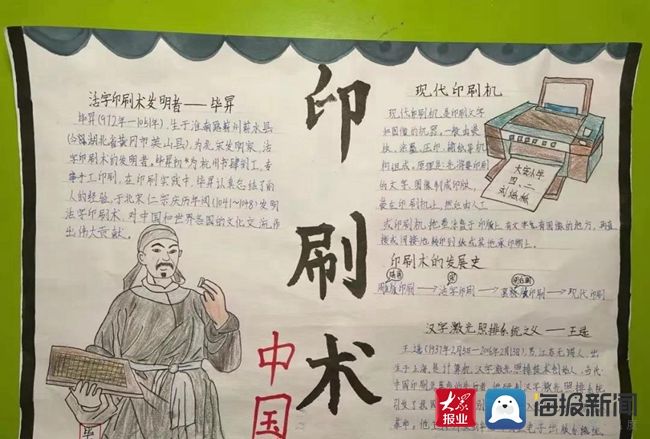 活字印刷术发明者——毕昇
毕昇(972年—1051年),生于淮南路蕲州蕲水县
(今湖北省黄冈市英山县),为北宋发明家,活
字印刷术的发明者。毕昇初为杭州书肆刻工,专
事手工印刷。在印刷实践中,毕昇认真总结了前
人的经验,于北宋仁宗庆历年间(1041~1048)发明
活字印刷术。对中国和世界各国的文化交流作
出伟大贡献。
印刷术
中国
现代印刷机
现代印刷机是印刷文字
和图像的机器,一般由装
版、涂墨、压印、输纸等机
构组成。原理是:先将要印刷
的文字、图像制成印版,
装在印刷机上,然后由人工
或印刷机把墨涂敷于印版上有文字和有图像的地方,再直
接或间接地转印到纸或其他承印物上。
大安小学
四、二
刘梳梳
印刷术的发展史
隋唐
宋
雕版印刷→活字印刷→套板印刷→现代印刷
汉字激光照排系统之父——王选
王选(1937年2月5日—2006年2月13日),男,江苏无锡人,出
生于上海,是计算机汉字激光照排技术创始人,当代
中国印刷业革命的先行者
毕
大众报业
海报新闻